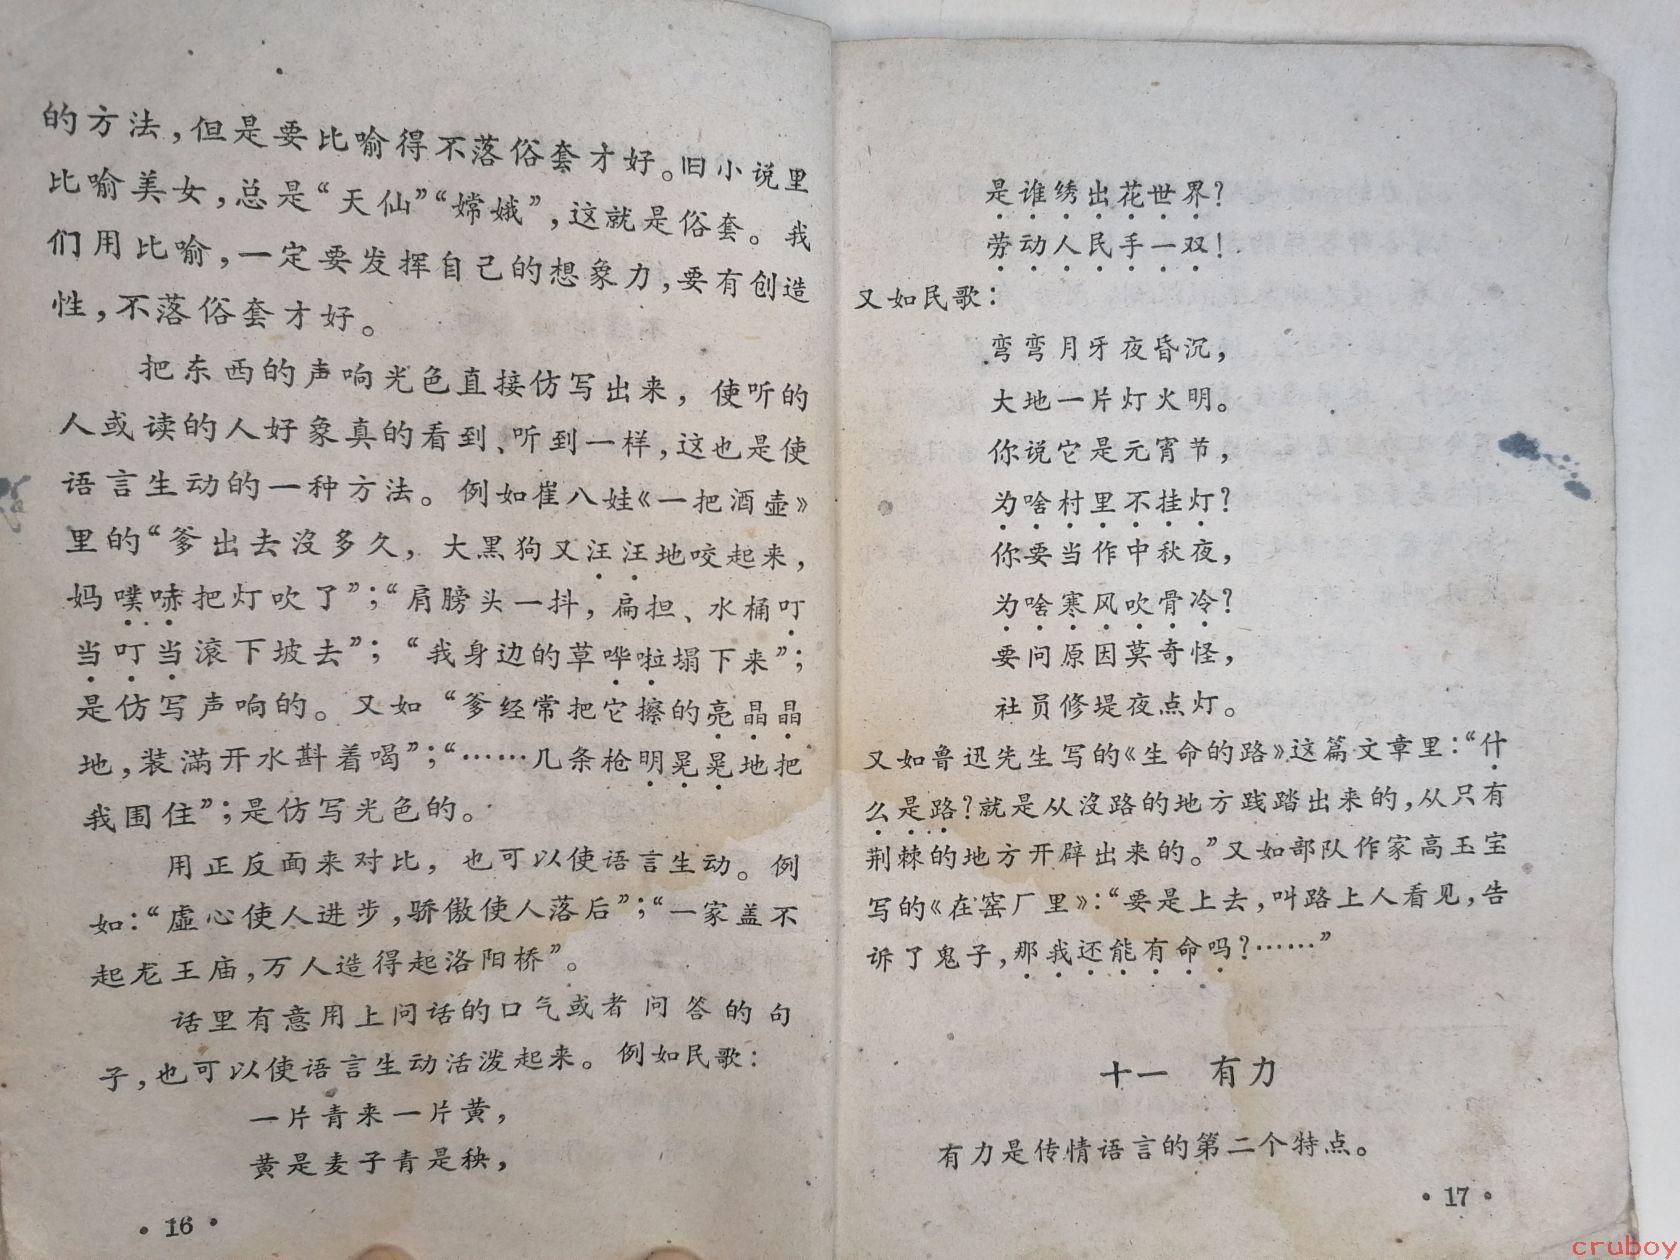 的方法，但是要比喻得不落俗套才好。旧小说里
比喻美女，总是“天仙”“嫦娥”，这就是俗套。我
们用比喻，一定要发挥自己的想象力，要有创造
性，不落俗套才好。
把东西的声响光色直接仿写出来，使听的
人或读的人好象真的看到、听到一样，这也是使
语言生动的一种方法。例如崔八娃《一把酒壶》
里的“爹出去沒多久，大黑狗又汪汪地咬起来，
妈噗哧把灯吹了”；“肩膀头一抖，扁担、水桶叮
当叮当滚下坡去”；“我身边的草哗啦塌下来”；
是仿写声响的。又如“爹经常把它擦的亮晶晶
地，装滿开水斟着喝”；“……几条枪明晃晃地把
我围住”；是仿写光色的。
用正反面来对比，也可以使语言生动。例
如：“虚心使人进步，骄傲使人落后”；“一家盖不
起龙王庙，万人造得起洛阳桥”。
话里有意用上问话的口气或者问答的句
子，也可以使语言生动活泼起来。例如民歌：
一片青来一片黄，
黄是麦子青是秧，
·16·
是谁绣出花世界？
劳动人民手一双！
又如民歌：
弯弯月牙夜昏沉，
大地一片灯火明。
你说它是元宵节，
为啥村里不挂灯？
你要当作中秋夜，
为啥寒风吹骨冷？
要问原因莫奇怪，
社员修堤夜点灯。
又如鲁迅先生写的《生命的路》这篇文章里：“什
么是路？就是从沒路的地方践踏出来的，从只有
荆棘的地方开辟出来的。”又如部队作家高玉宝
写的《在窑厂里》：“要是上去，叫路上人看见，告
诉了鬼子，那我还能有命吗？……”
十一　有力
有力是传情语言的第二个特点。
·17·
cruboy